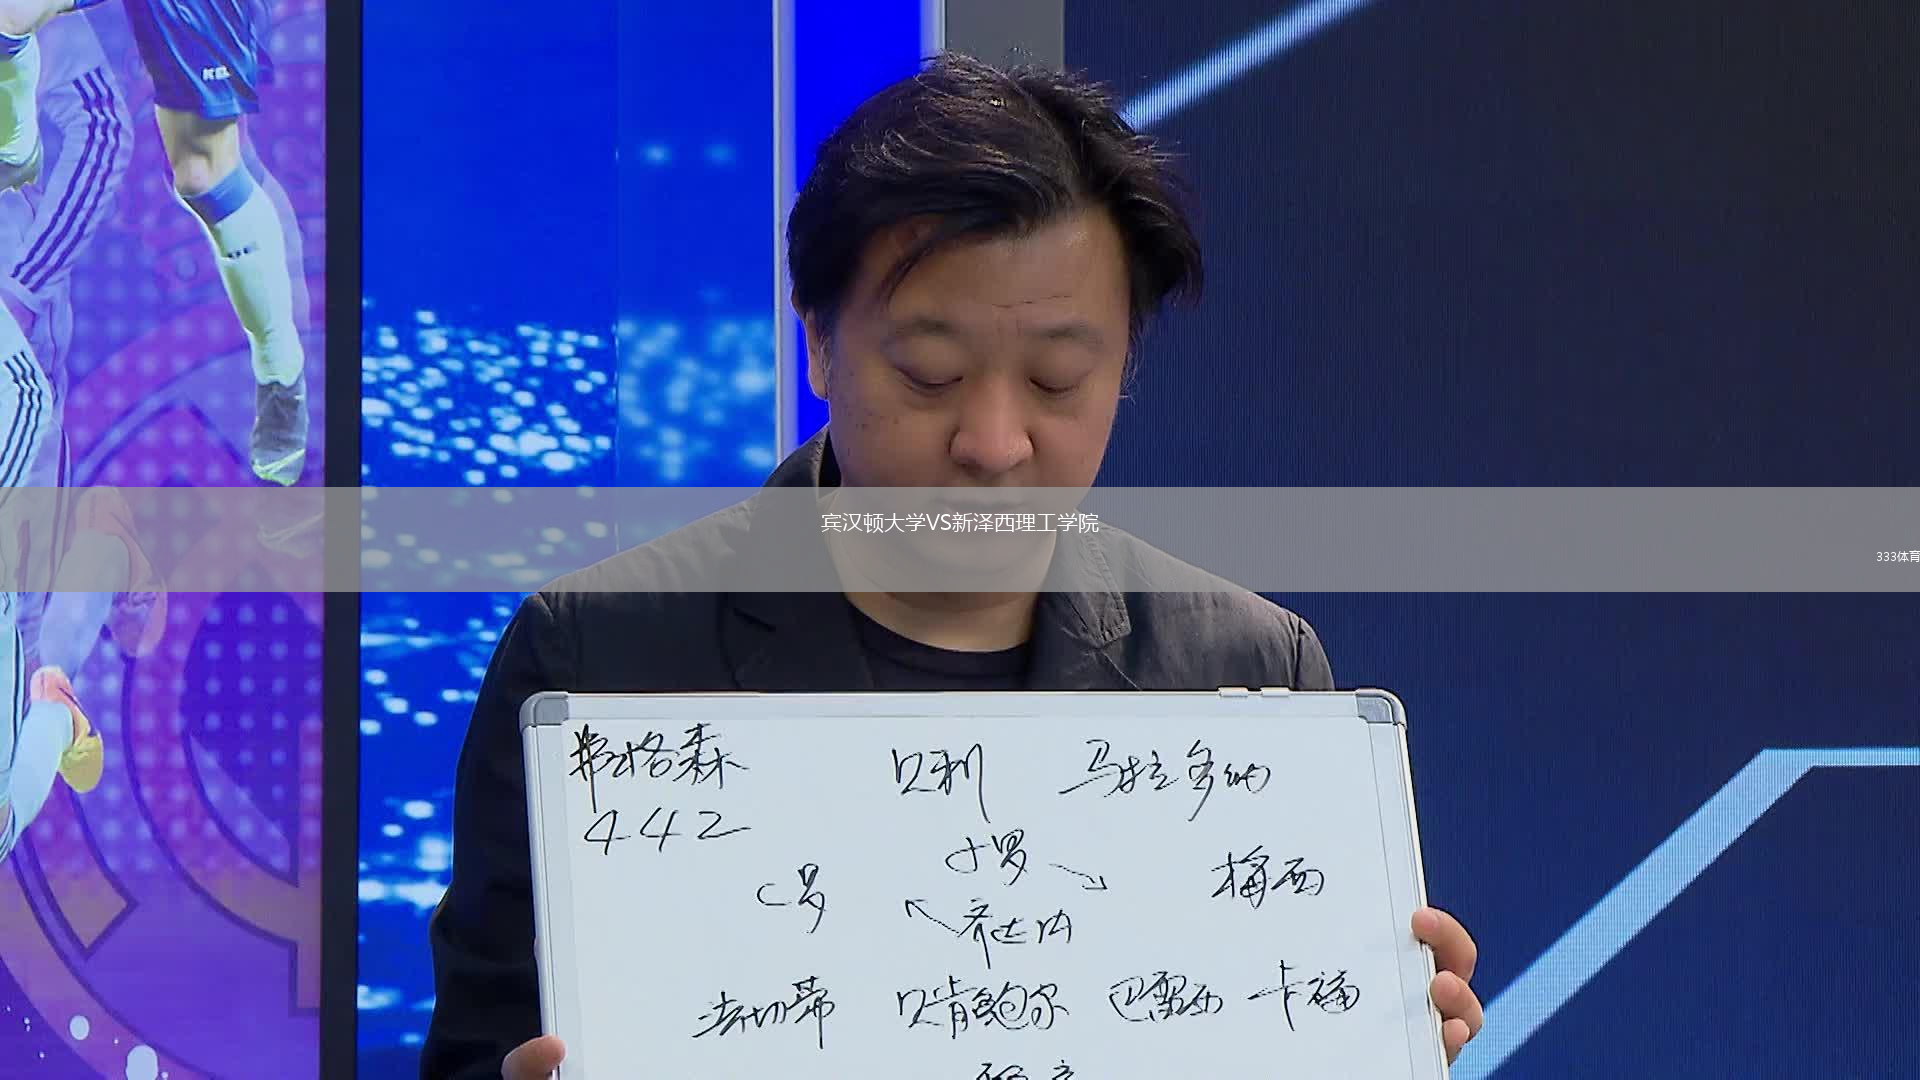 宾汉顿大学VS新泽西理工学院
333体育
弗格森 贝利 马拉多纳
442
小罗
C罗 梅西
齐达内
法切蒂 贝肯鲍尔 巴雷西 卡福